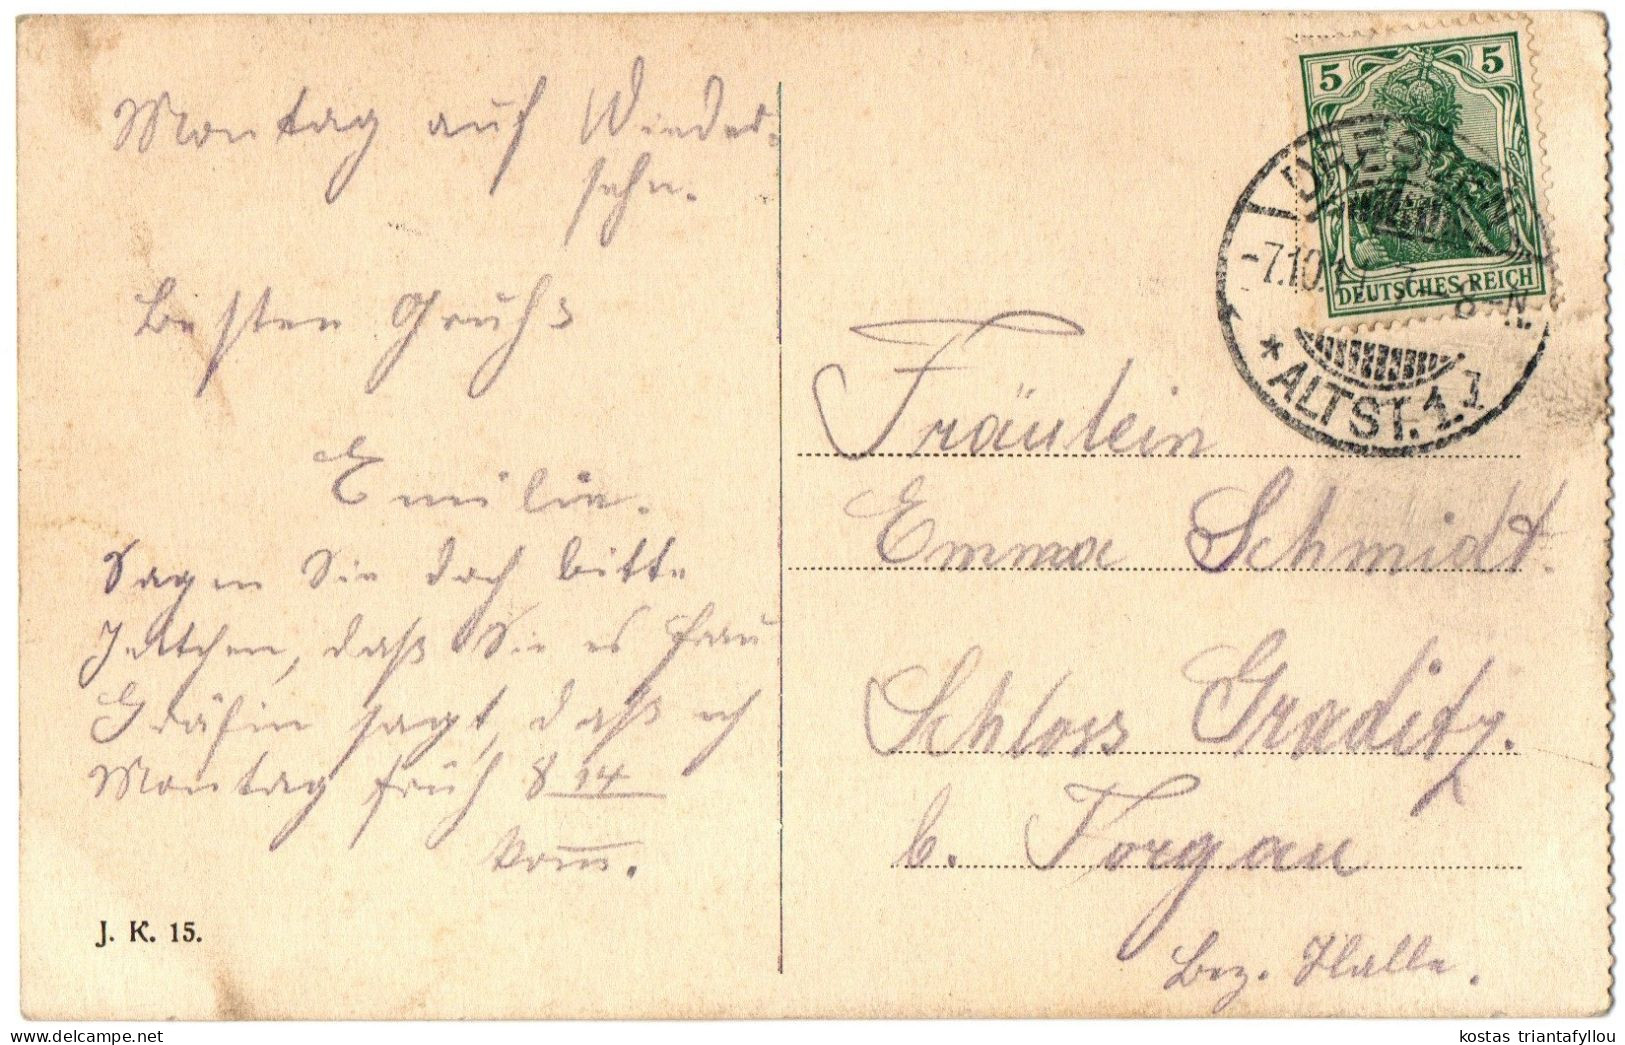 Montag auf Wieder-
sehn.
Besten Gruß
Emilie.
Sagen Sie doch bitte
Jettchen, daß Sie es Frau
Gräfin sagt, daß ich
Montag früh 8 14
kom̅.
J. K. 15.
5 5
DEUTSCHES REICH
DRESDEN
-7.10.1
8-N.
* ALTST. 1. *
Fräulein
Emma Schmidt.
Schloss Graditz.
b. Torgau
Bez. Halle.
kostas triantafyllou